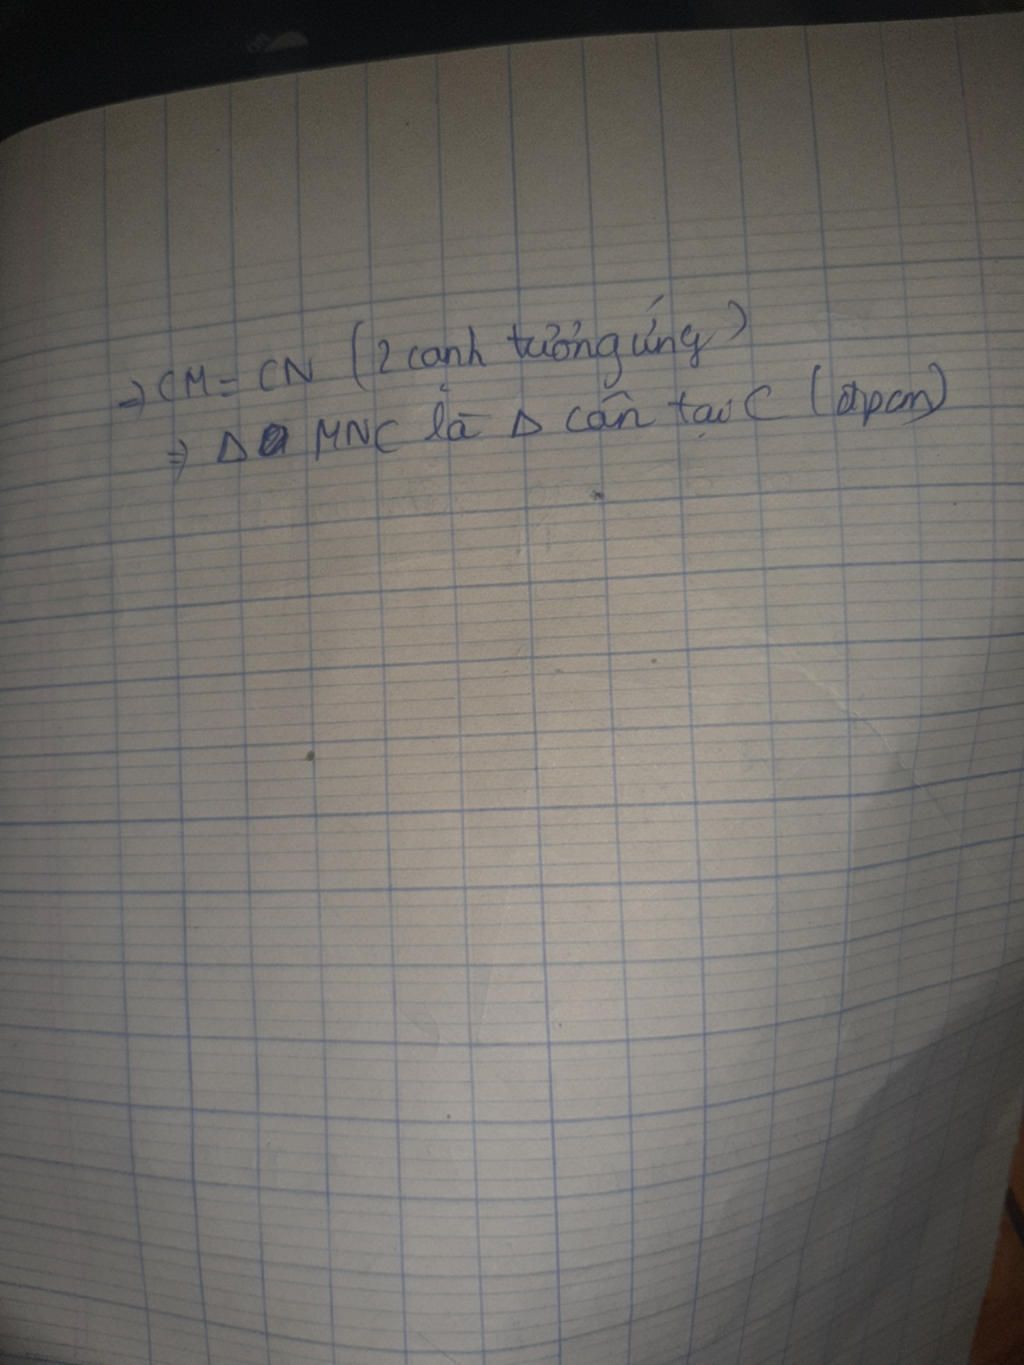 ⇒ CM = CN (2 cạnh tương ứng)
⇒ Δ MNC là Δ cân tại C (đpcm)